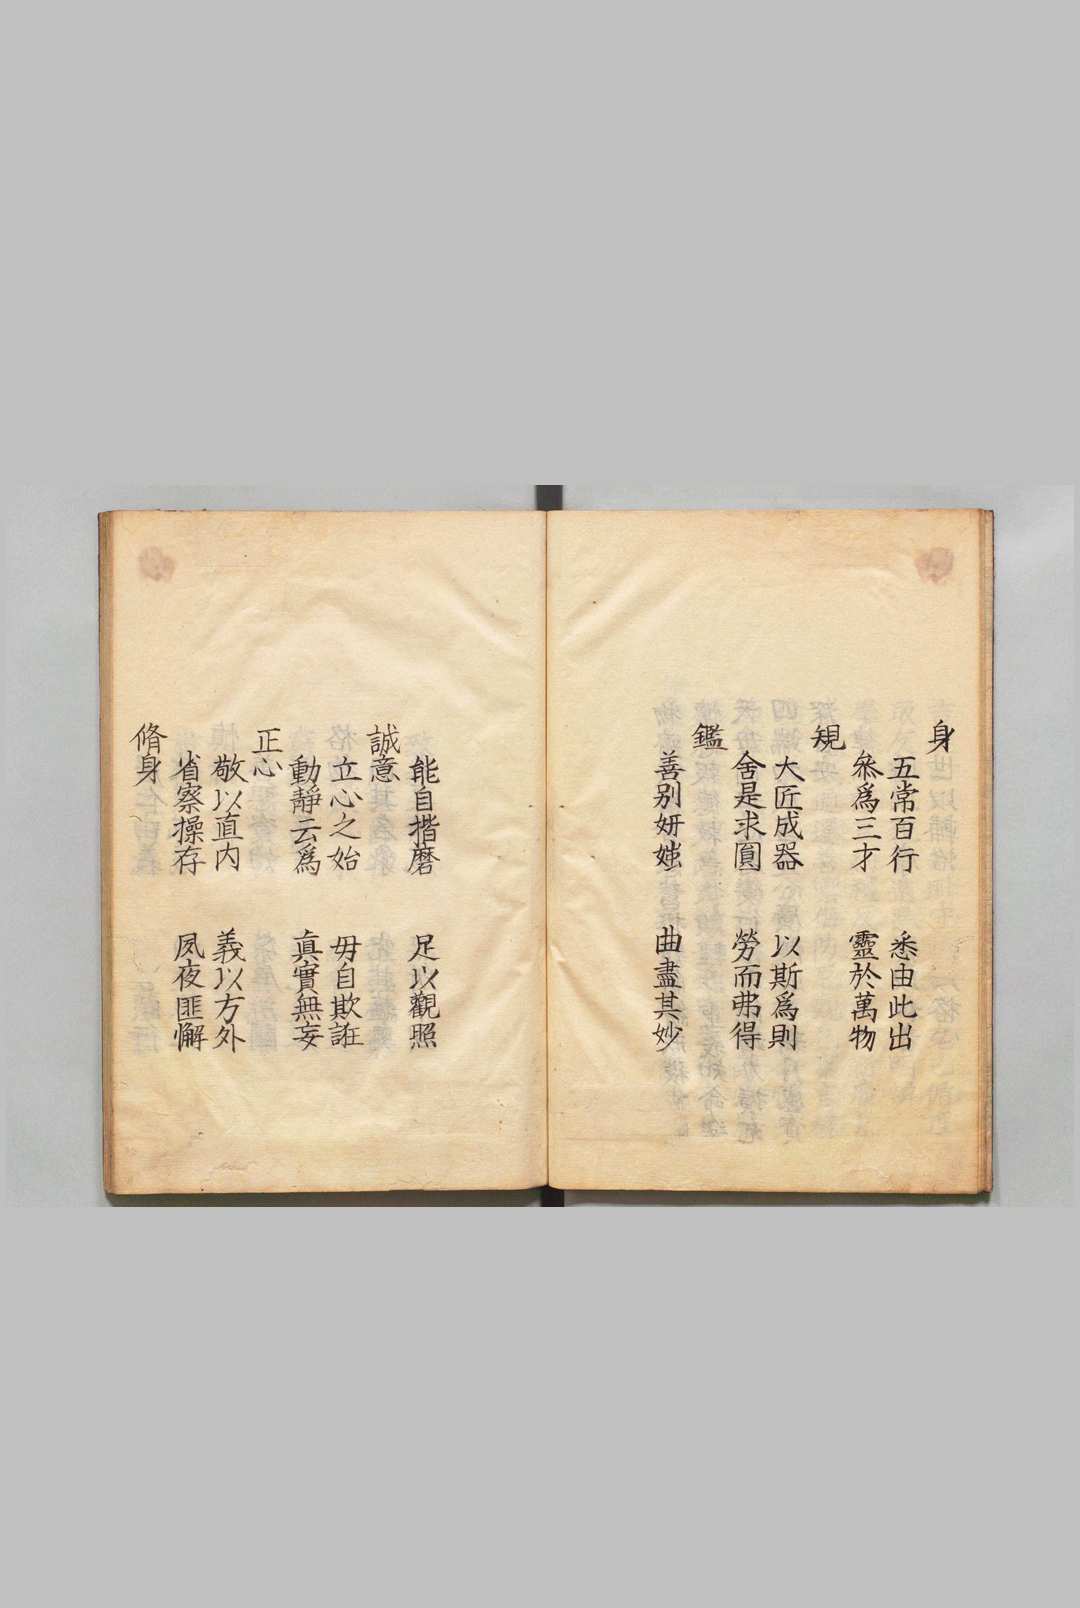 身
五常百行 悉由此出
叅爲三才 靈於萬物
規
大匠成器 以斯爲則
舍是求圓 勞而弗得
鑑
善别妍媸 曲盡其妙
能自揩磨 足以觀照
誠意
立心之始 毋自欺誑
動靜云爲 真實無妄
正心
敬以直内 義以方外
省察操存 夙夜匪懈
脩身